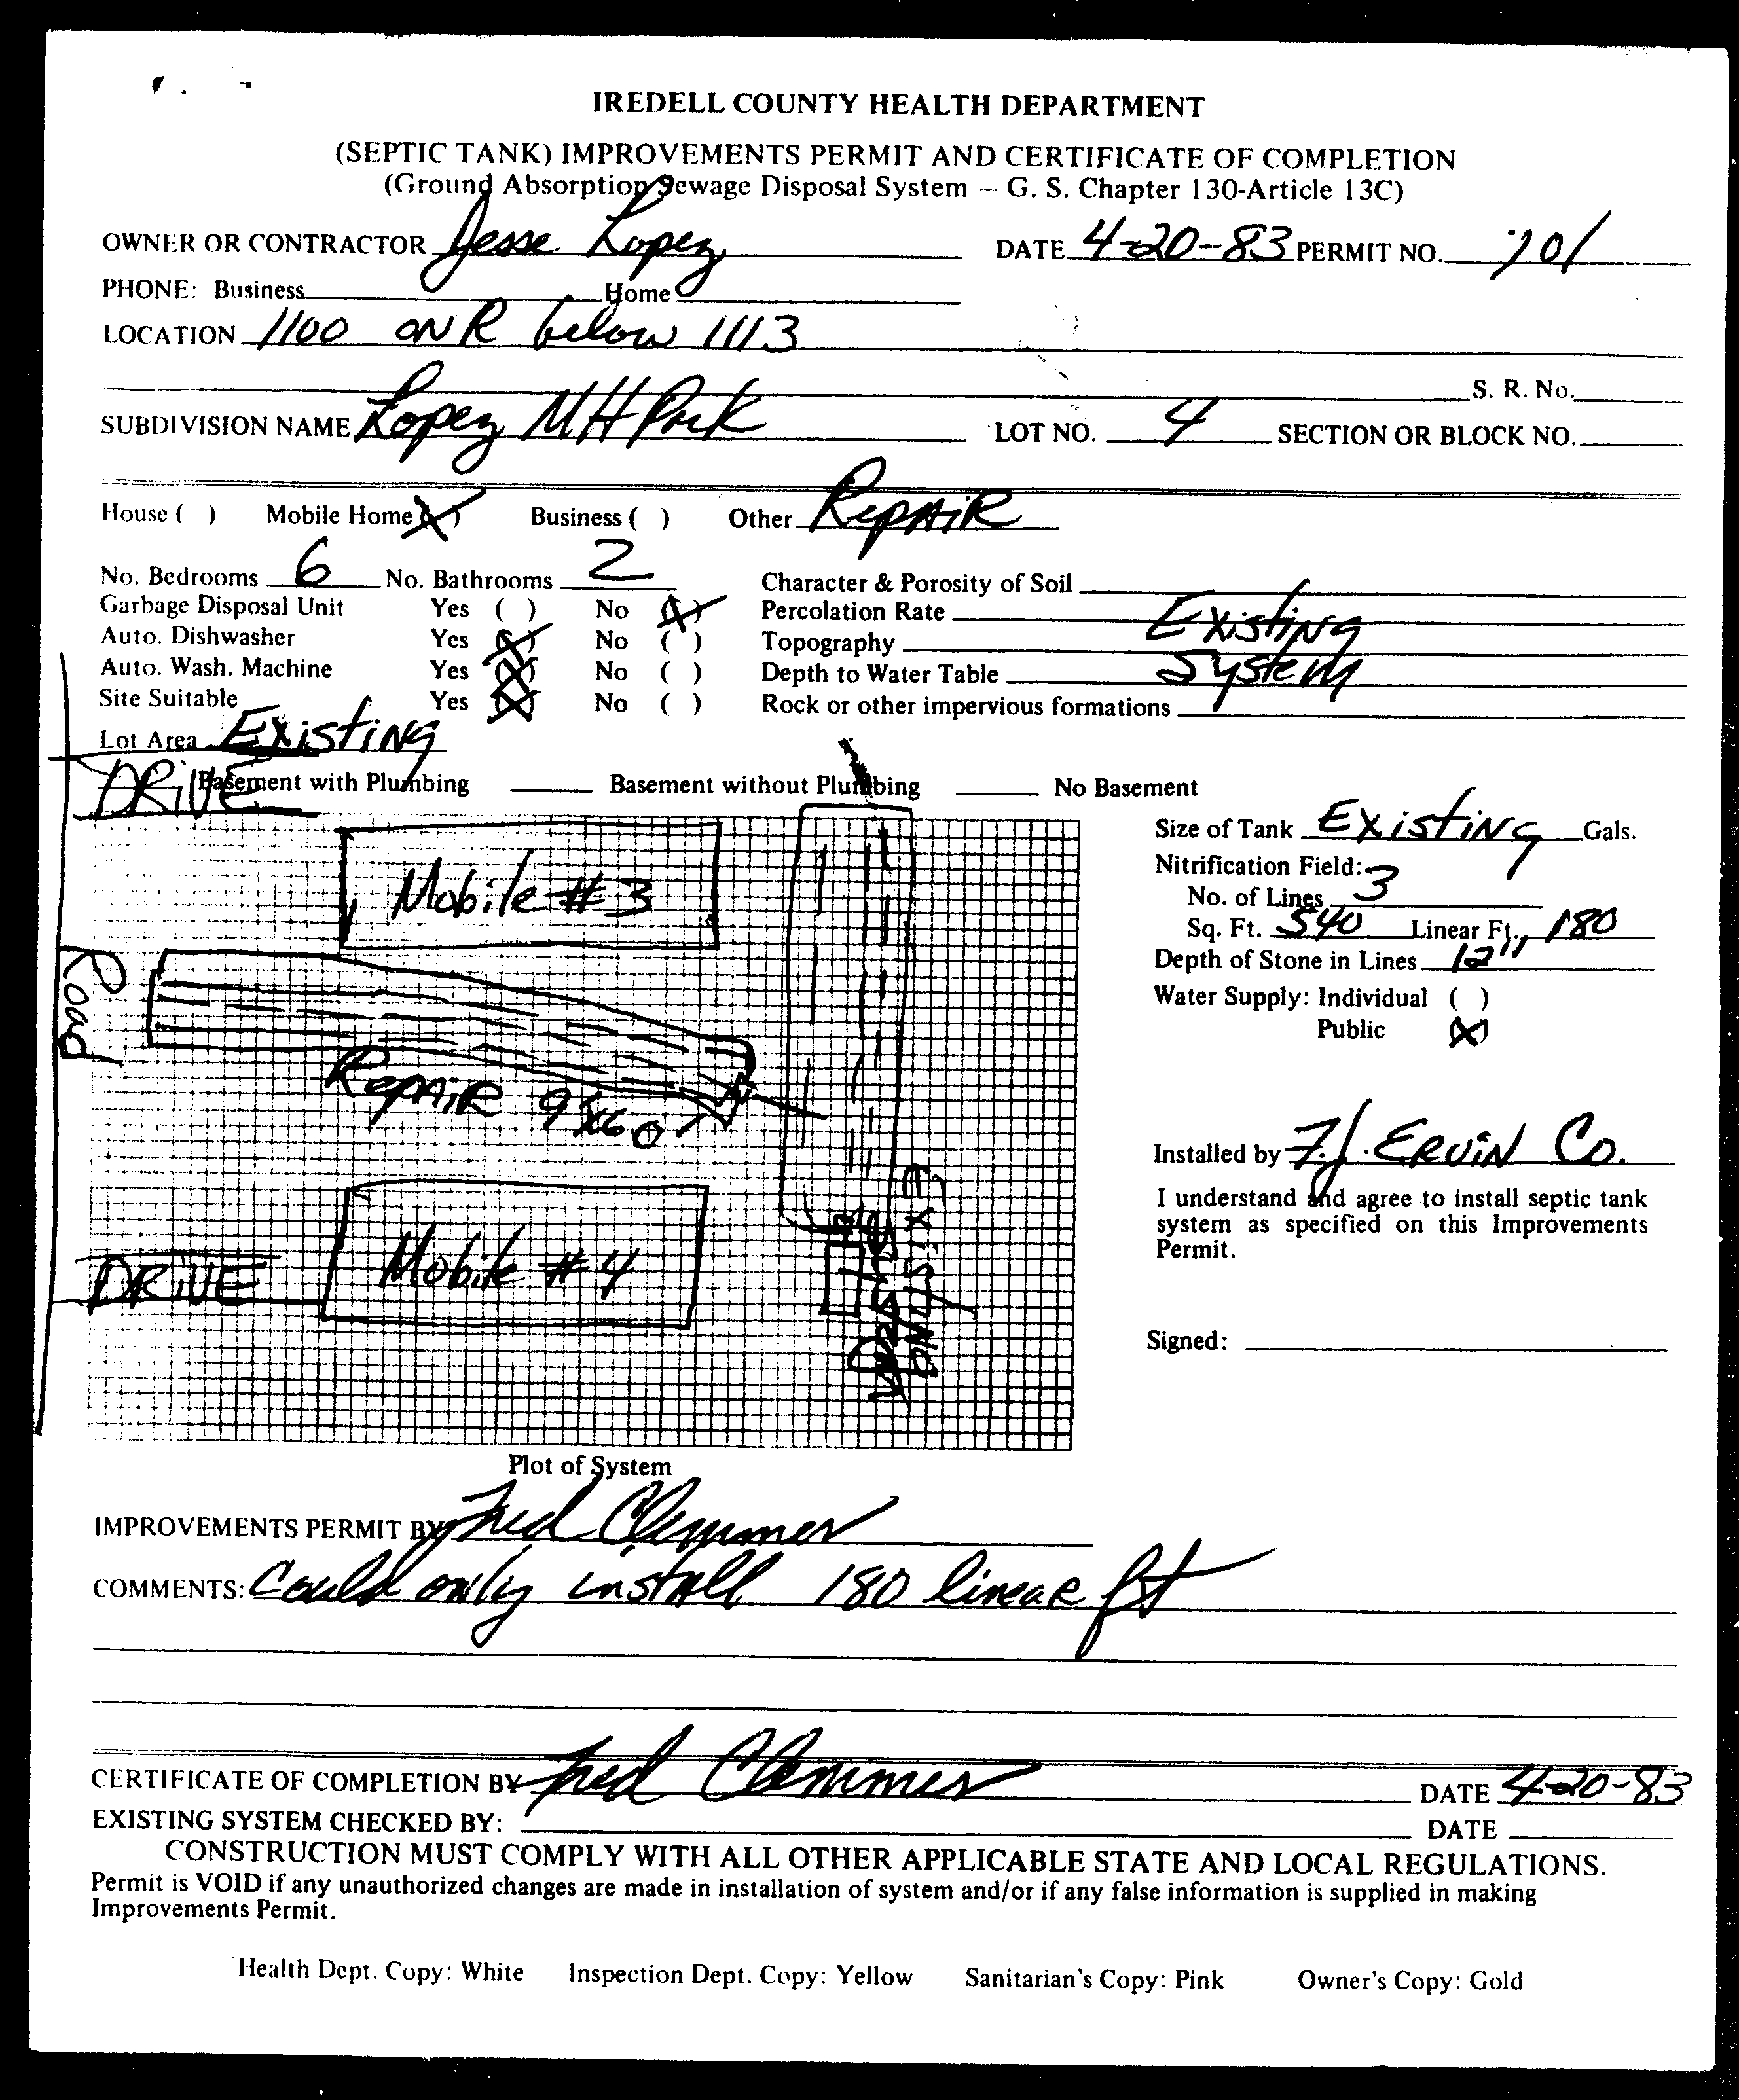 IREDELL COUNTY HEALTH DEPARTMENT
(SEPTIC TANK) IMPROVEMENTS PERMIT AND CERTIFICATE OF COMPLETION
(Ground Absorption Sewage Disposal System – G. S. Chapter 130-Article 13C)
OWNER OR CONTRACTOR Jesse Lopez DATE 4-20-83 PERMIT NO. 701
PHONE: Business Home
LOCATION 1100 ON R below 1113
S. R. No.
SUBDIVISION NAME Lopez MH Park LOT NO. 4 SECTION OR BLOCK NO.
House ( ) Mobile Home (X) Business ( ) Other Repair
No. Bedrooms 6 No. Bathrooms 2 Character & Porosity of Soil
Garbage Disposal Unit Yes ( ) No (X) Percolation Rate Existing
Auto. Dishwasher Yes (X) No ( ) Topography
Auto. Wash. Machine Yes (X) No ( ) Depth to Water Table System
Site Suitable Yes (X) No ( ) Rock or other impervious formations
Lot Area Existing
Basement with Plumbing Basement without Plumbing No Basement
DRIVE
Mobile #3
Road
Repair 9'x60'
EXISTING
Mobile #4
DRIVE
Size of Tank Existing Gals.
Nitrification Field:
No. of Lines 3
Sq. Ft. 540 Linear Ft. 180
Depth of Stone in Lines 12"
Water Supply: Individual ( )
Public (X)
Installed by F.J. Ervin Co.
I understand and agree to install septic tank
system as specified on this Improvements
Permit.
Signed:
Plot of System
IMPROVEMENTS PERMIT BY Fred Clemmer
COMMENTS: Could only install 180 linear ft
CERTIFICATE OF COMPLETION BY Fred Clemmer DATE 4-20-83
EXISTING SYSTEM CHECKED BY: DATE
CONSTRUCTION MUST COMPLY WITH ALL OTHER APPLICABLE STATE AND LOCAL REGULATIONS.
Permit is VOID if any unauthorized changes are made in installation of system and/or if any false information is supplied in making
Improvements Permit.
Health Dept. Copy: White Inspection Dept. Copy: Yellow Sanitarian's Copy: Pink Owner's Copy: Gold